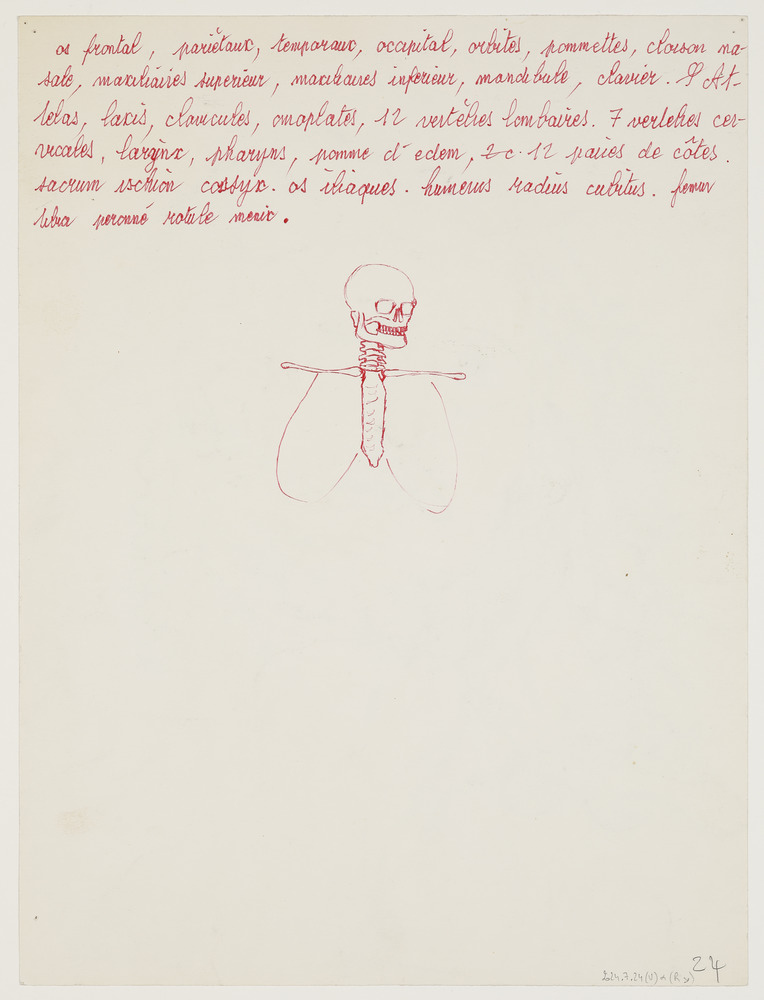 os frontal, pariètaux, temporaux, occipital, orbites, pommettes, cloison na-
sale, maxiliaires superieur, maxiliaires inferieur, mandibule, clavier. At-
telas, laxis, clavicules, omoplates, 12 vertèbres lombaires. 7 vertebres cer-
vicales, larynx, pharyns, pomme d'edem, 12 paires de côtes.
sacrum ischion cossyx. os iliaques. humerus radius cubitus. femur
tibia peronné rotule menix.
24